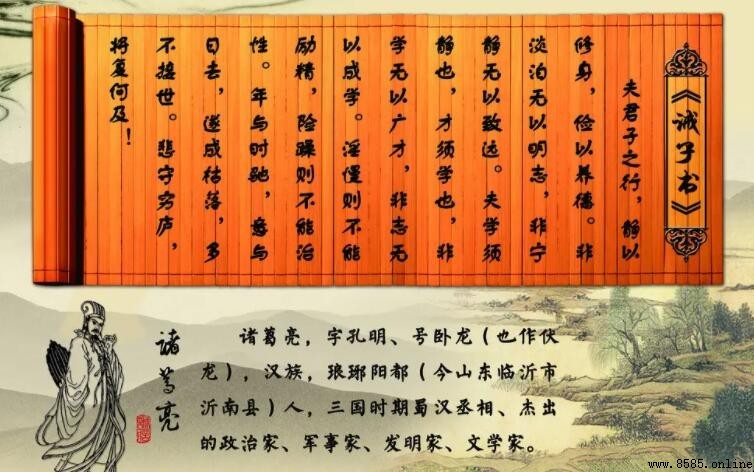 《诫子书》
夫君子之行，静以
修身，俭以养德。非
淡泊无以明志，非宁
静无以致远。夫学须
静也，才须学也，非
学无以广才，非志无
以成学。淫慢则不能
励精，险躁则不能治
性。年与时驰，意与
日去，遂成枯落，多
不接世。悲守穷庐，
将复何及！
诸葛亮
诸葛亮，字孔明、号卧龙（也作伏
龙），汉族，琅琊阳都（今山东临沂市
沂南县）人，三国时期蜀汉丞相、杰出
的政治家、军事家、发明家、文学家。
www.8585.online